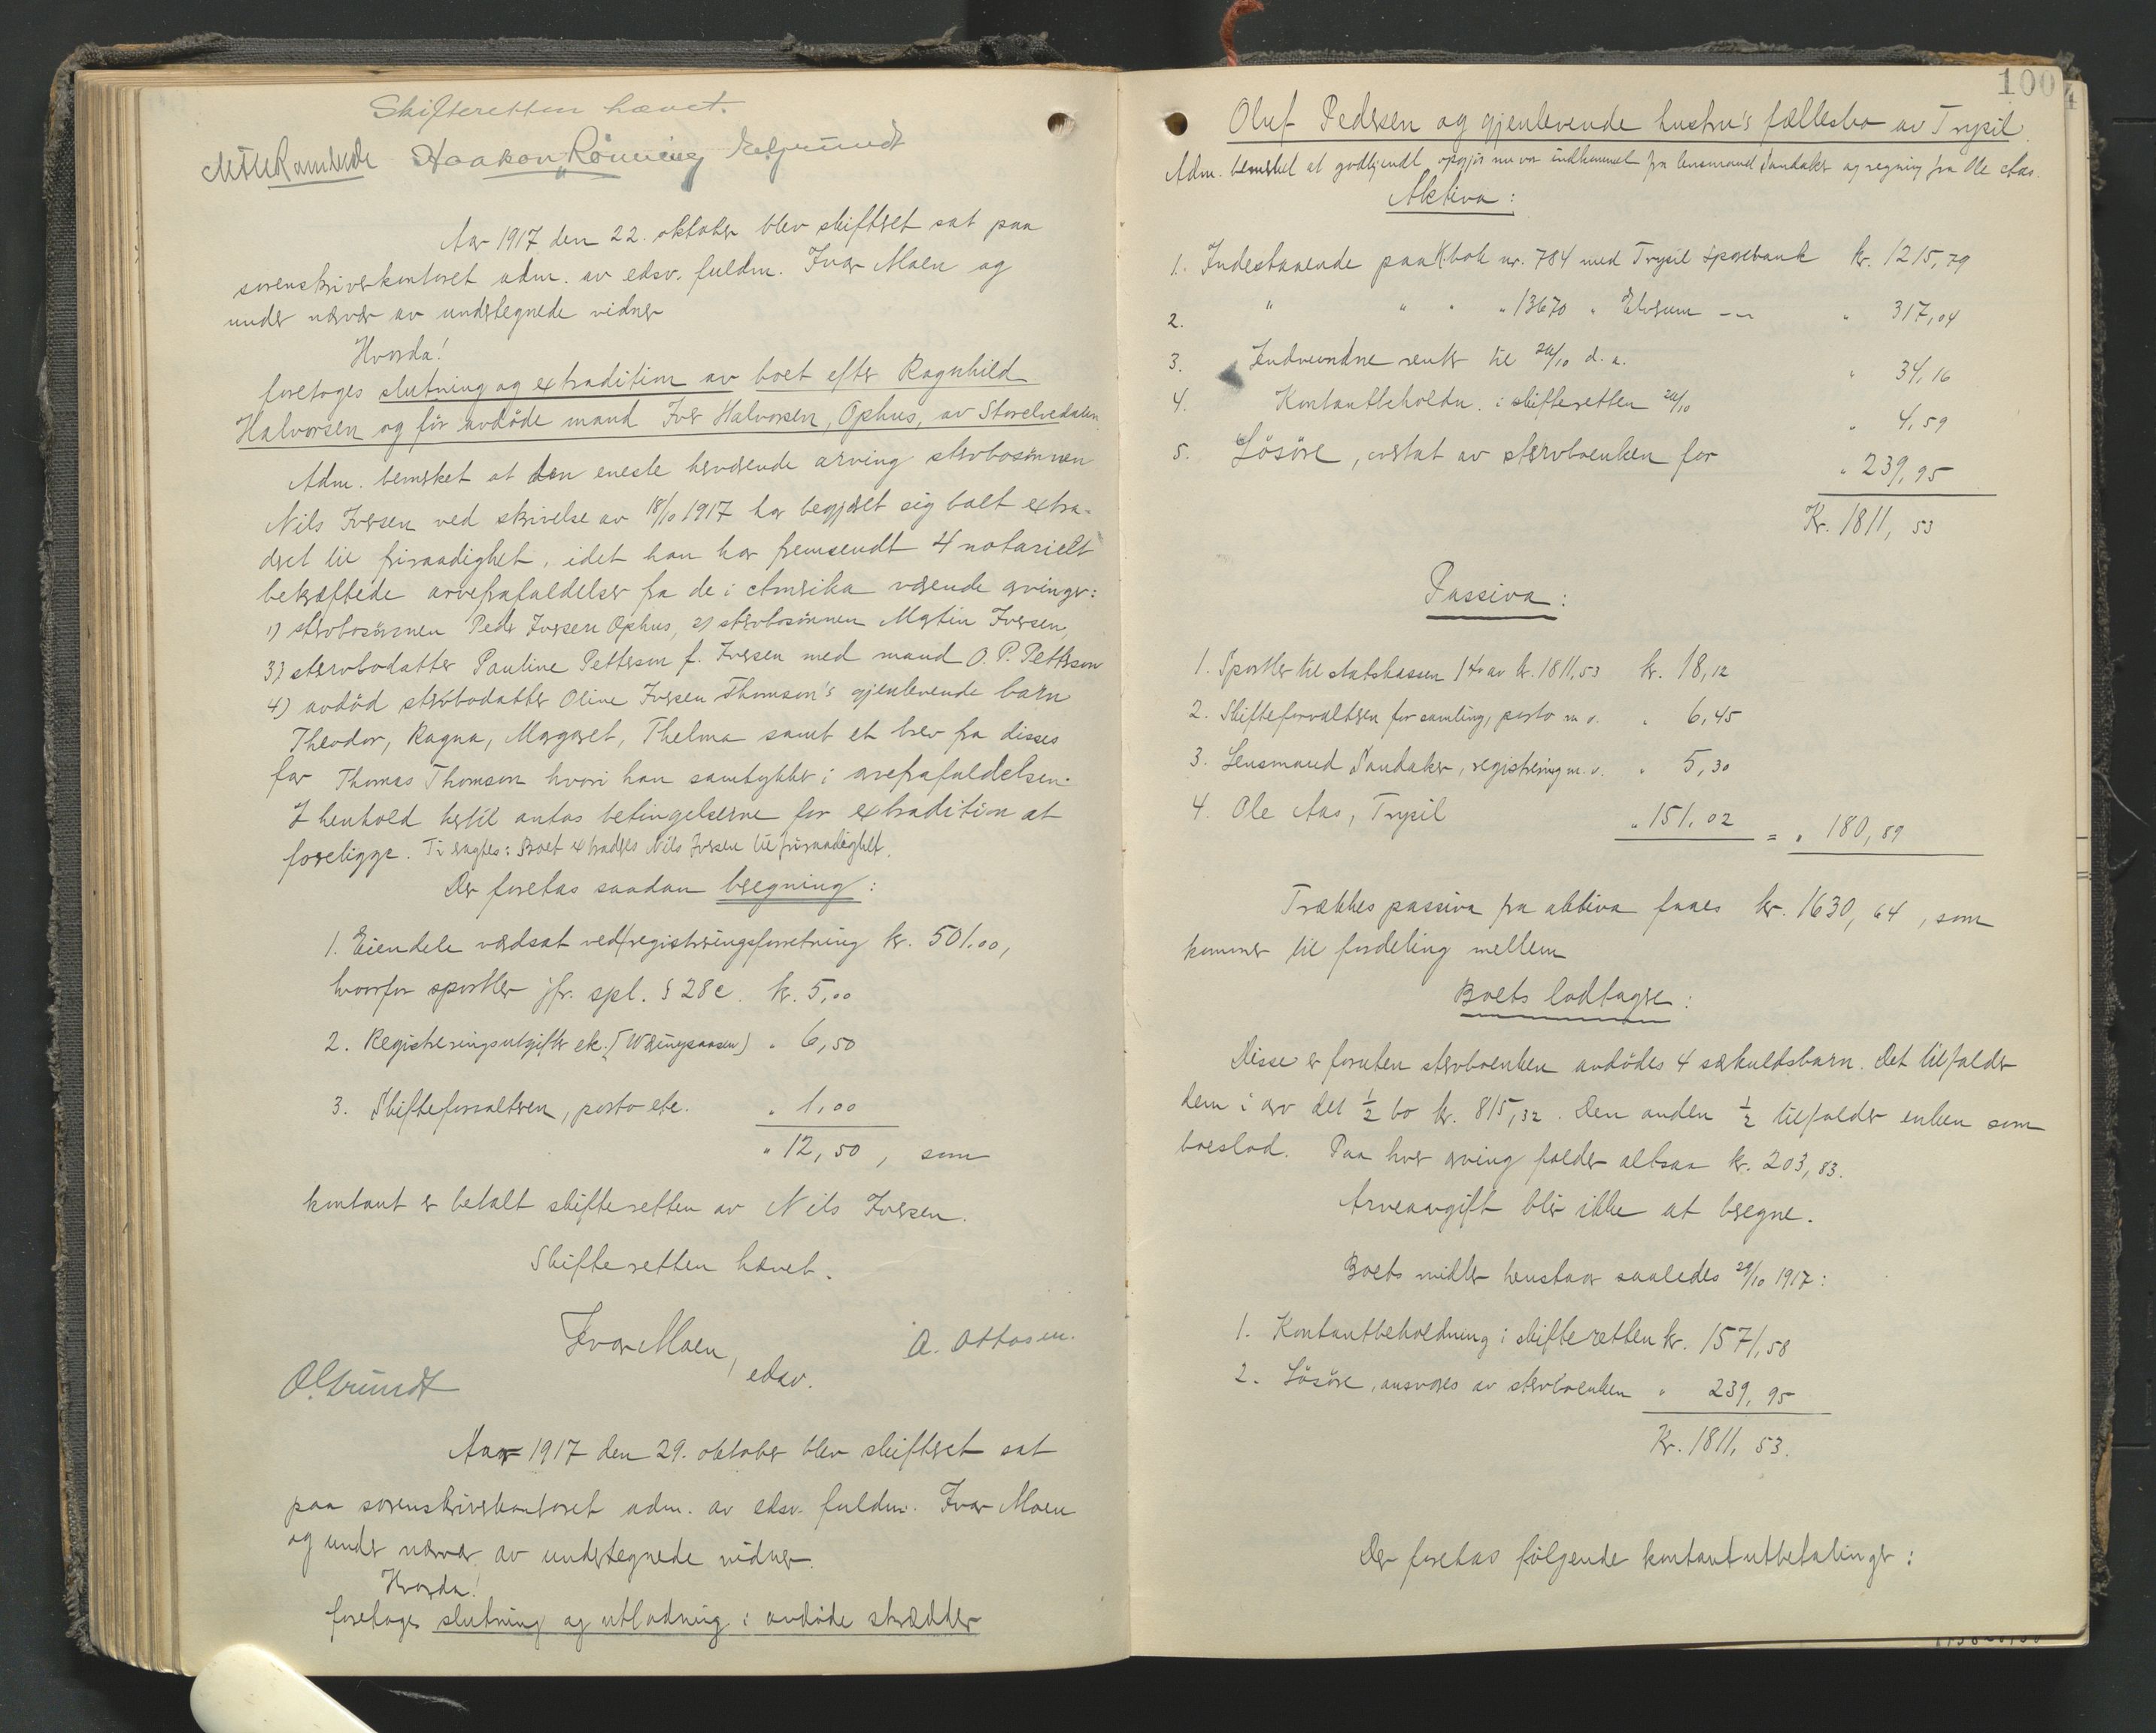 Skifteretten hævet.
Haakon Rønning
Aar 1917 den 22. oktober blev skifteret sat paa
sorenskriverkontoret adm. av edsv. fuldm. Ivar Moen og
under nærvær av undertegnede vidner
Hvorda!
foretoges slutning og extradition av boet efter Ragnhild
Halvorsen og før avdøde mand Iver Halvorsen, Ophus, av Storelvedalen.
Adm. bemerket at den eneste herværende arving stervbosønnen
Nils Iversen ved skrivelse av 18/10 1917 har begjæret sig boet extra-
deret til friraadighet, idet han har fremsendt 4 notarielt
bekræftede arvefrafaldelser fra de i Amerika værende arvinger:
1) stervbosønnen Peder Iversen Ophus, 2) stervbosønnen Martin Iversen,
3) stervbodatter Pauline Petterson f. Iversen med mand O. P. Petterson
4) avdød stervbodatter Oline Iversen Thomson's gjenlevende barn
Theodor, Ragna, Margaret, Thelma samt et brev fra disses
far Thomas Thomson hvori han samtykker i arvefrafaldelsen.
I henhold hertil antas betingelserne for extradition at
foreligge. Ti eragtes: Boet extraderes Nils Iversen til friraadighet.
Der foretas saadan beregning:
1. Eiendele værdsat ved registreringsforretning kr. 501.00,
hvorfor sportler jfr. spl. § 28 c. kr. 5,00
2. Registreringsutgifter etc. (Wæringsaasen) " 6,50
3. Skifteforvalteren, porto etc. " 1,00
" 12,50, som
kontant er betalt skifteretten av Nils Iversen.
Skifteretten hævet.
Ivar Moen, edsv.
A. Ottosen.
O. Grundt
Aar 1917 den 29. oktober blev skifteret sat
paa sorenskriverkontoret adm. av edsv. fuldm. Ivar Moen
og under nærvær av undertegnede vidner.
Hvorda!
foretoges slutning og utlodning i avdøde skrædder
100
Oluf Pedersen og gjenlevende hustru's fællesbo av Trysil.
Adm. bemerket at godkjendt opgjør nu var indkommet fra lensmand Sandaker og regning fra Ole Aas.
Aktiva:
1. Indestaaende paa K.bok nr. 784 med Trysil Sparebank kr. 1215,79
2. " " " " 13670 " Elverum -"- " 317,04
3. Indvundne renter til 20/10 d.a. " 34,16
4. Kontantbeholdn. i skifteretten 20/10 " 4,59
5. Løsøre, overtat av stervboenken for " 239,95
Kr. 1811,53
Passiva:
1. Sportler til statskassen 1 % av kr. 1811,53 kr. 18,12
2. Skifteforvalteren for samling, porto m.v. " 6,45
3. Lensmand Sandaker, registrering m.v. " 5,30
4. Ole Aas, Trysil " 151,02 = " 180,89
Trækkes passiva fra aktiva faaes kr. 1630,64, som
kommer til fordeling mellem
Boets lodtagere:
Disse er foruten stervboenken avdødes 4 særkuldsbarn. Det tilfalder
dem i arv det ½ bo kr. 815,32. Den anden ½ tilfalder enken som
boeslod. Paa hver arving falder altsaa kr. 203,83.
Arveavgift blir ikke at beregne.
Boets midler henstaar saaledes 29/10 1917:
1. Kontantbeholdning i skifteretten kr. 1571,58
2. Løsøre, ansvares av stervboenken " 239,95
Kr. 1811,53.
Der foretas følgende kontantutbetalinger: